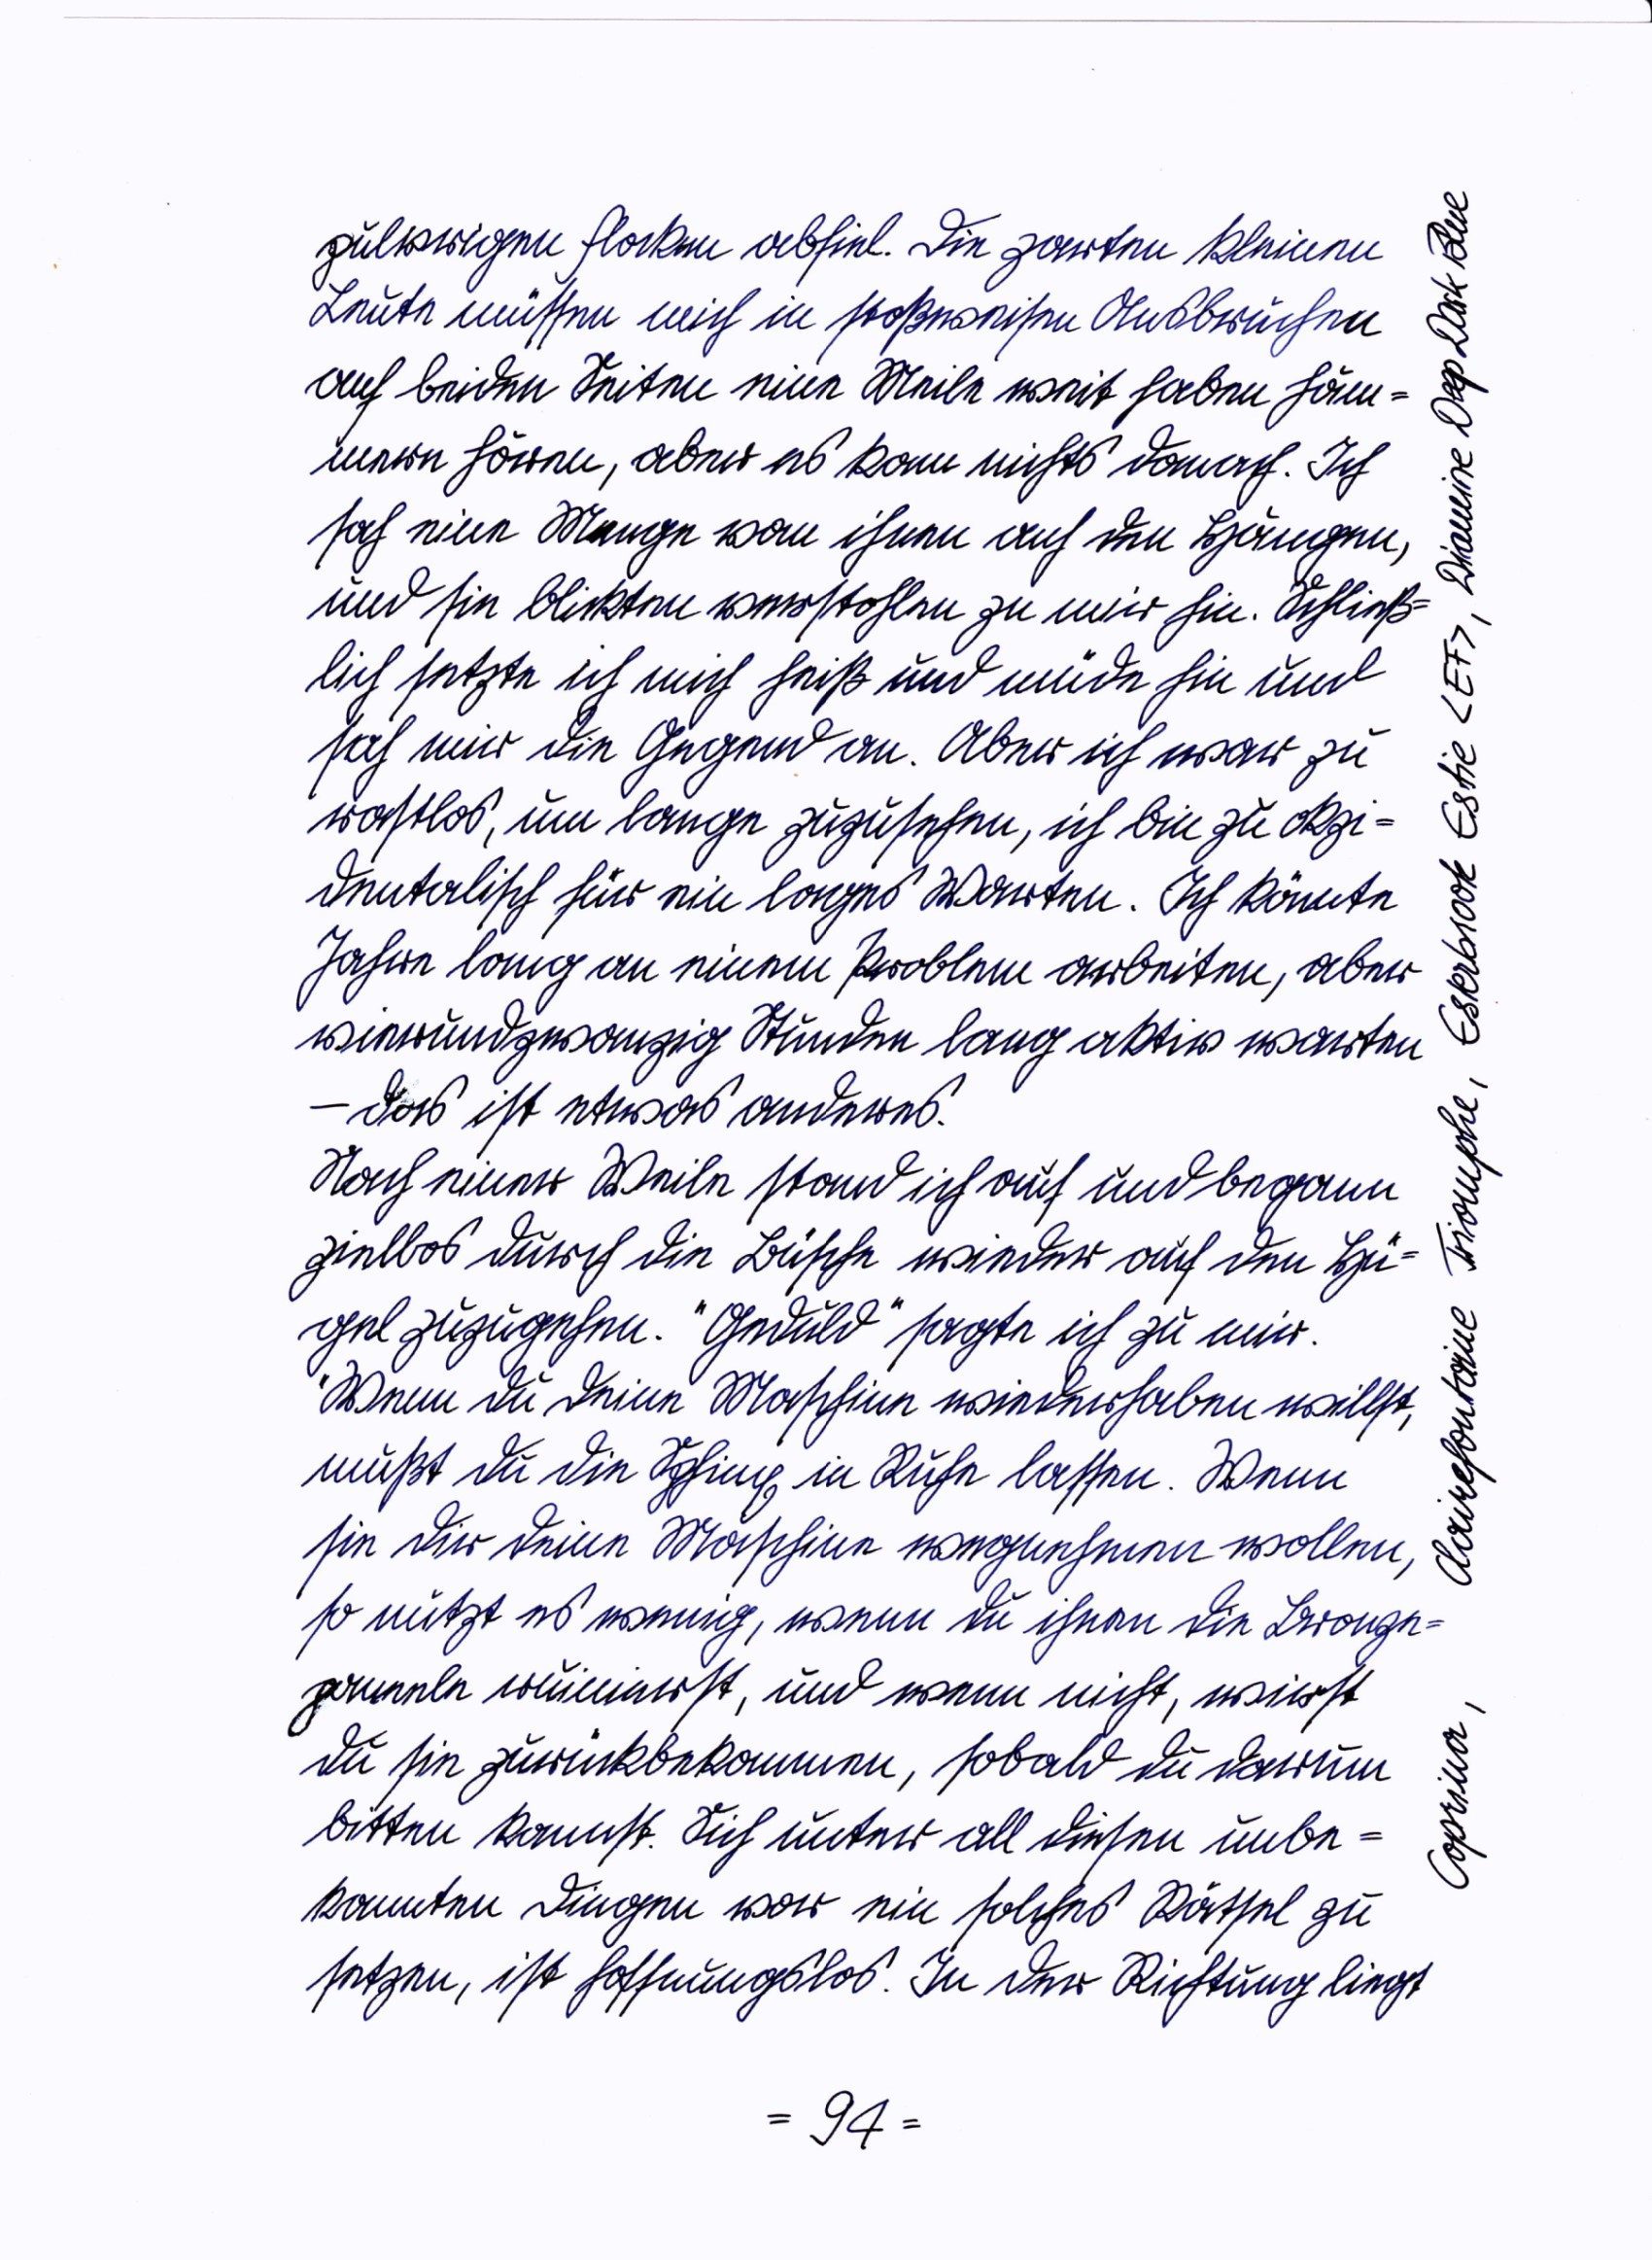 pulvrigen Flocken abfiel. Die zarten kleinen
Leute müssen mich in stoßweisen Ausbrüchen
auf beiden Seiten eine Meile weit haben häm=
mern hören, aber es kam nichts danach. Ich
sah eine Menge von ihnen auf den Hängen,
und sie blickten verstohlen zu mir hin. Schließ=
lich setzte ich mich heiß und müde hin und
sah mir die Gegend an. Aber ich war zu
rastlos, um lange zuzusehen, ich bin zu okzi=
dentalisch für ein langes Warten. Ich könnte
Jahre lang an einem Problem arbeiten, aber
vierundzwanzig Stunden lang aktiv warten
— das ist etwas anderes.
Nach einer Weile stand ich auf und begann
ziellos durch die Büsche wieder auf den Hü=
gel zuzugehen. "Geduld" sagte ich zu mir.
"Wenn du deine Maschine wiederhaben willst,
mußt du die Sphinx in Ruhe lassen. Wenn
sie dir deine Maschine wegnehmen wollen,
so nützt es wenig, wenn du ihnen die Bronze=
paneele ruinierst, und wenn nicht, wirst
du sie zurückbekommen, sobald du darum
bitten kannst. Sich unter all diesen unbe=
kannten Dingen vor ein solches Rätsel zu
setzen, ist hoffnungslos. In der Richtung liegt
= 94 =
Coprina, Clairefontaine Triomphe, Esterbrook Estie <EF>, Diamine Deep Dark Blue